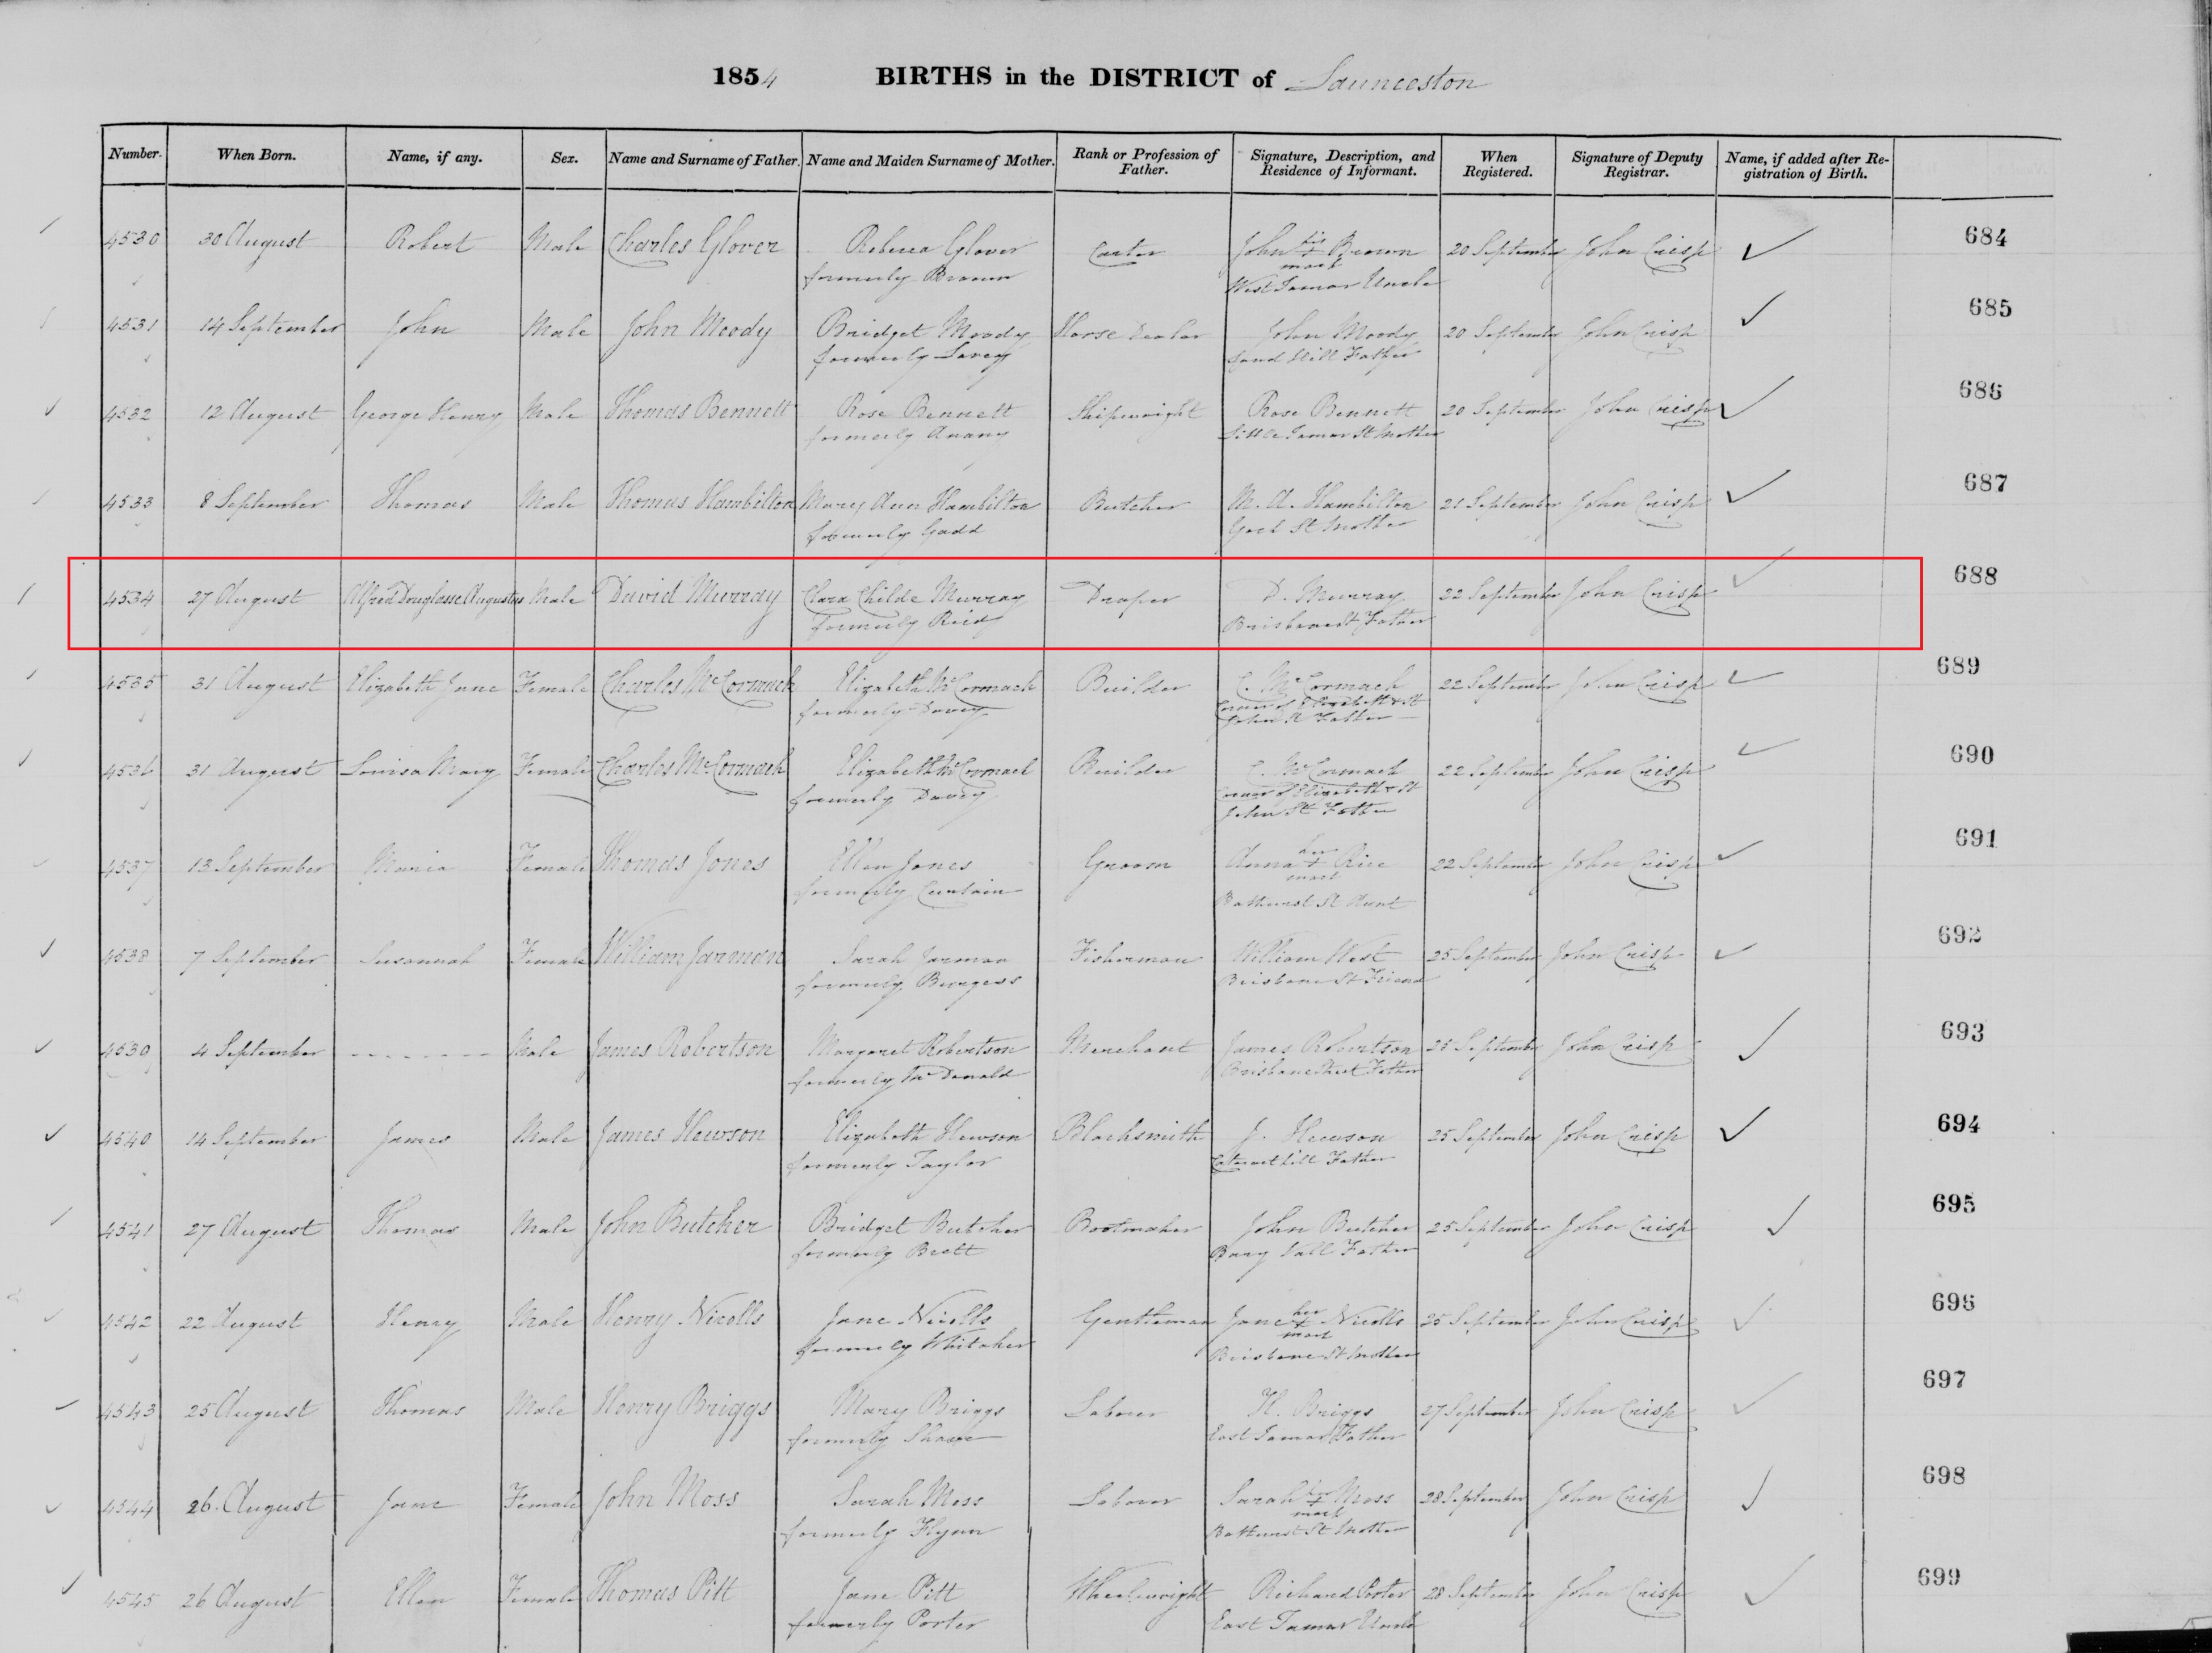 1854 BIRTHS in the DISTRICT of Launceston
Number. When Born. Name, if any. Sex. Name and Surname of Father. Name and Maiden Surname of Mother. Rank or Profession of Father. Signature, Description, and Residence of Informant. When Registered. Signature of Deputy Registrar. Name, if added after Registration of Birth.
4530 30 August Robert Male Charles Glover Rebecca Glover Carter John his + Brown 20 September John Crisp 684
formerly Brown mark
West Tamar Uncle
4531 14 September John Male John Moody Bridget Moody Horse Dealer John Moody 20 September John Crisp 685
formerly Sand Hill Father
4532 12 August George Henry Male Thomas Bennett Rose Bennett Shipwright Rose Bennett 20 September John Crisp 686
formerly Tamar St Mother
4533 8 September Thomas Male Thomas Hambilton Mary Ann Hambilton Butcher M. A. Hambilton 21 September John Crisp 687
formerly Gadd St Mother
4534 27 August Alfred Douglasse Augustus Male David Murray Clara Childe Murray Draper D. Murray 22 September John Crisp 688
formerly Reid Brisbane St Father
4535 31 August Elizabeth Jane Female Charles McCormack Elizabeth McCormack Builder C. McCormack 22 September John Crisp 689
formerly Davey Corner of Elizabeth & St
John St Father
4536 31 August Louisa Mary Female Charles McCormack Elizabeth McCormack Builder C. McCormack 22 September John Crisp 690
formerly Davey Corner of Elizabeth & St
John St Father
4537 13 September Maria Female Thomas Jones Ellen Jones Groom Anna her + Rice 22 September John Crisp 691
formerly Curtain mark
Bathurst St Aunt
4538 7 September Susannah Female William Jarman Sarah Jarman Fisherman William West 25 September John Crisp 692
formerly Burgess Brisbane St Friend
4539 4 September Male James Robertson Margaret Robertson Merchant James Robertson 25 September John Crisp 693
formerly McDonald Brisbane Street Father
4540 14 September James Male James Hewson Elizabeth Hewson Blacksmith J. Hewson 25 September John Crisp 694
formerly Taylor Cataract hill Father
4541 27 August Thomas Male John Butcher Bridget Butcher Bootmaker John Butcher 25 September John Crisp 695
formerly Brett Father
4542 22 August Henry Male Henry Nicolls Jane Nicolls Gentleman Jane her + Nicolls 25 September John Crisp 696
formerly Whitaker mark
Brisbane St Mother
4543 25 August Thomas Male Henry Briggs Mary Briggs Laborer H. Briggs 27 September John Crisp 697
formerly East Tamar Father
4544 26 August Jane Female John Moss Sarah Moss Laborer Sarah her + Moss 28 September John Crisp 698
formerly Flynn mark
Bathurst St Mother
4545 26 August Ellen Female Thomas Pitt Jane Pitt Wheelwright Richard Porter 28 September John Crisp 699
formerly Porter East Tamar Uncle